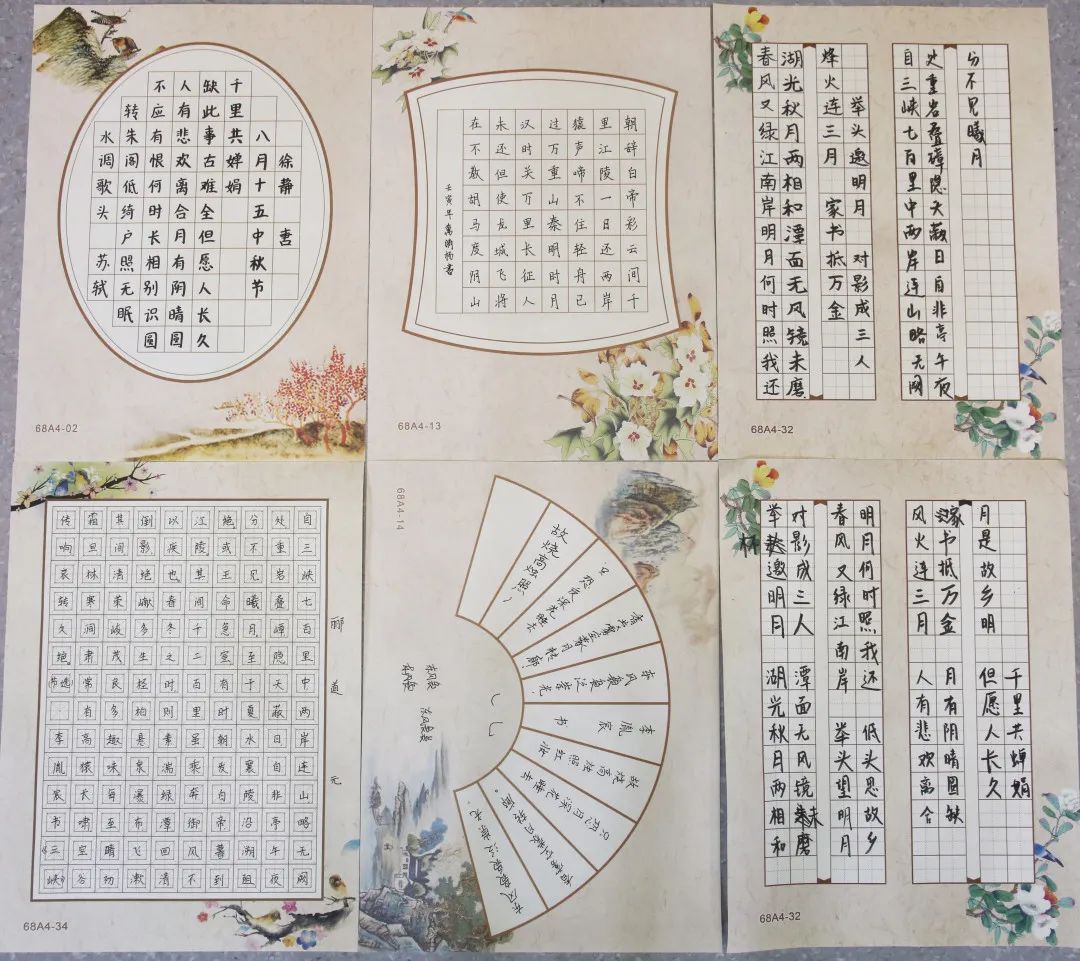 徐静
八月十五中秋节
千里共婵娟
缺此事古难全但愿人长久
人有悲欢离合月有阴晴圆
不应有恨何时长相别识圆
转朱阁低绮户照无眠
水调歌头 苏轼
68A4-02
朝辞白帝彩云间千
里江陵一日还两岸
猿声啼不住轻舟已
过万重山秦明时月
汉时关万里长征人
未还但使龙城飞将
在不教胡马度阴山
壬寅年 书
68A4-13
春风又绿江南岸明月何时照我还
湖光秋月两相和潭面无风镜未磨
烽火连三月 家书抵万金
举头邀明月 对影成三人
自三峡七百里中两岸连山略无阙
处重岩叠嶂隐天蔽日自非亭午夜
分不见曦月
68A4-32
自三峡七百里中两岸连山略无阙
处重岩叠嶂隐天蔽日自非亭午夜
分不见曦月至于夏水襄陵沿溯阻
绝或王命急宣有时朝发白帝暮到
江陵其间千二百里虽乘奔御风不
以疾也春冬之时则素湍绿潭回清
倒影绝巘多生柽柏悬泉瀑布飞漱
其间清荣峻茂良多趣味每至晴初
霜旦林寒涧肃常有高猿长啸空谷
传响哀转久绝(节选) 李胤宸书《三峡》
郦道元
68A4-34
68A4-14
故烧高烛照
只恐夜深花睡去
香雾空蒙月转廊
东风袅袅泛崇光
李胤宸书
故烧高烛照红妆
只恐夜深花睡去
举杯邀明月 湖光秋月两相和
对影成三人 潭面无风镜未磨
春风又绿江南岸 举头望明月
明月何时照我还 低头思故乡
风火连三月 人有悲欢离合
家书抵万金 月有阴晴圆缺
月是故乡明 但愿人长久
千里共婵娟
68A4-32